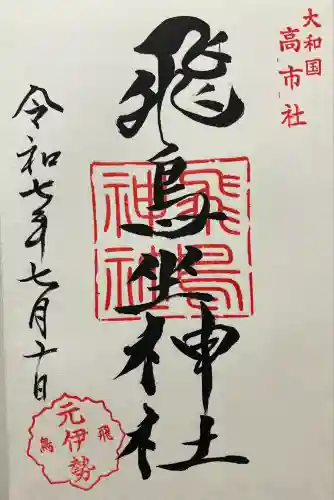 大和国
高市社
飛鳥坐神社
飛鳥
神社
令和七年七月十日
元伊勢
飛鳥